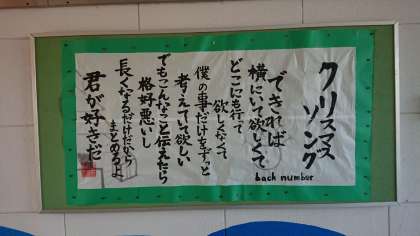 クリスマスソング
back number
できれば
横にいて欲しくて
どこにも行って
欲しくなくて
僕の事だけをずっと
考えていて欲しい
でもこんなこと伝えたら
格好悪いし
長くなるだけだから
まとめるよ
君が好きだ